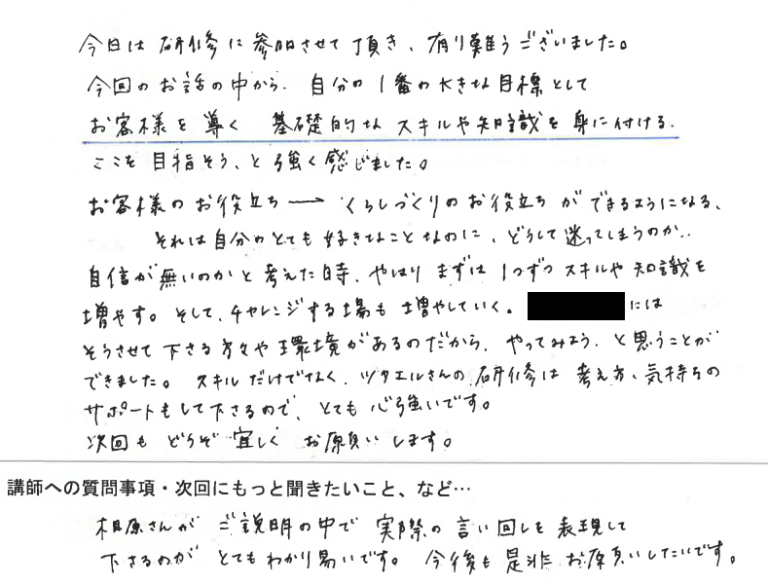 今日は研修に参加させて頂き、有り難うございました。
今回のお話の中から、自分の1番の大きな目標として
お客様を導く 基礎的な スキルや知識を身に付ける。
ここを目指そう、と強く感じました。
お客様のお役立ち→くらしづくりのお役立ちができるようになる、
それは自分のとても好きなことなのに、どうして迷ってしまうのか..
自信が無いのかと考えた時、やはりまずは1つずつスキルや知識を
増やす。そして、チャレンジする場も増やしていく。 には
そうさせて下さる方々や環境があるのだから、やってみよう、と思うことが
できました。スキルだけでなく、ツタエルさんの研修は考え方、気持ちの
サポートもして下さるので、とても心強いです。
次回もどうぞ宜しくお願いします。
講師への質問事項・次回にもっと聞きたいこと、など…
相原さんがご説明の中で実際の言い回しを表現して
下さるのがとてもわかり易いです。今後も是非お願いしたいです。